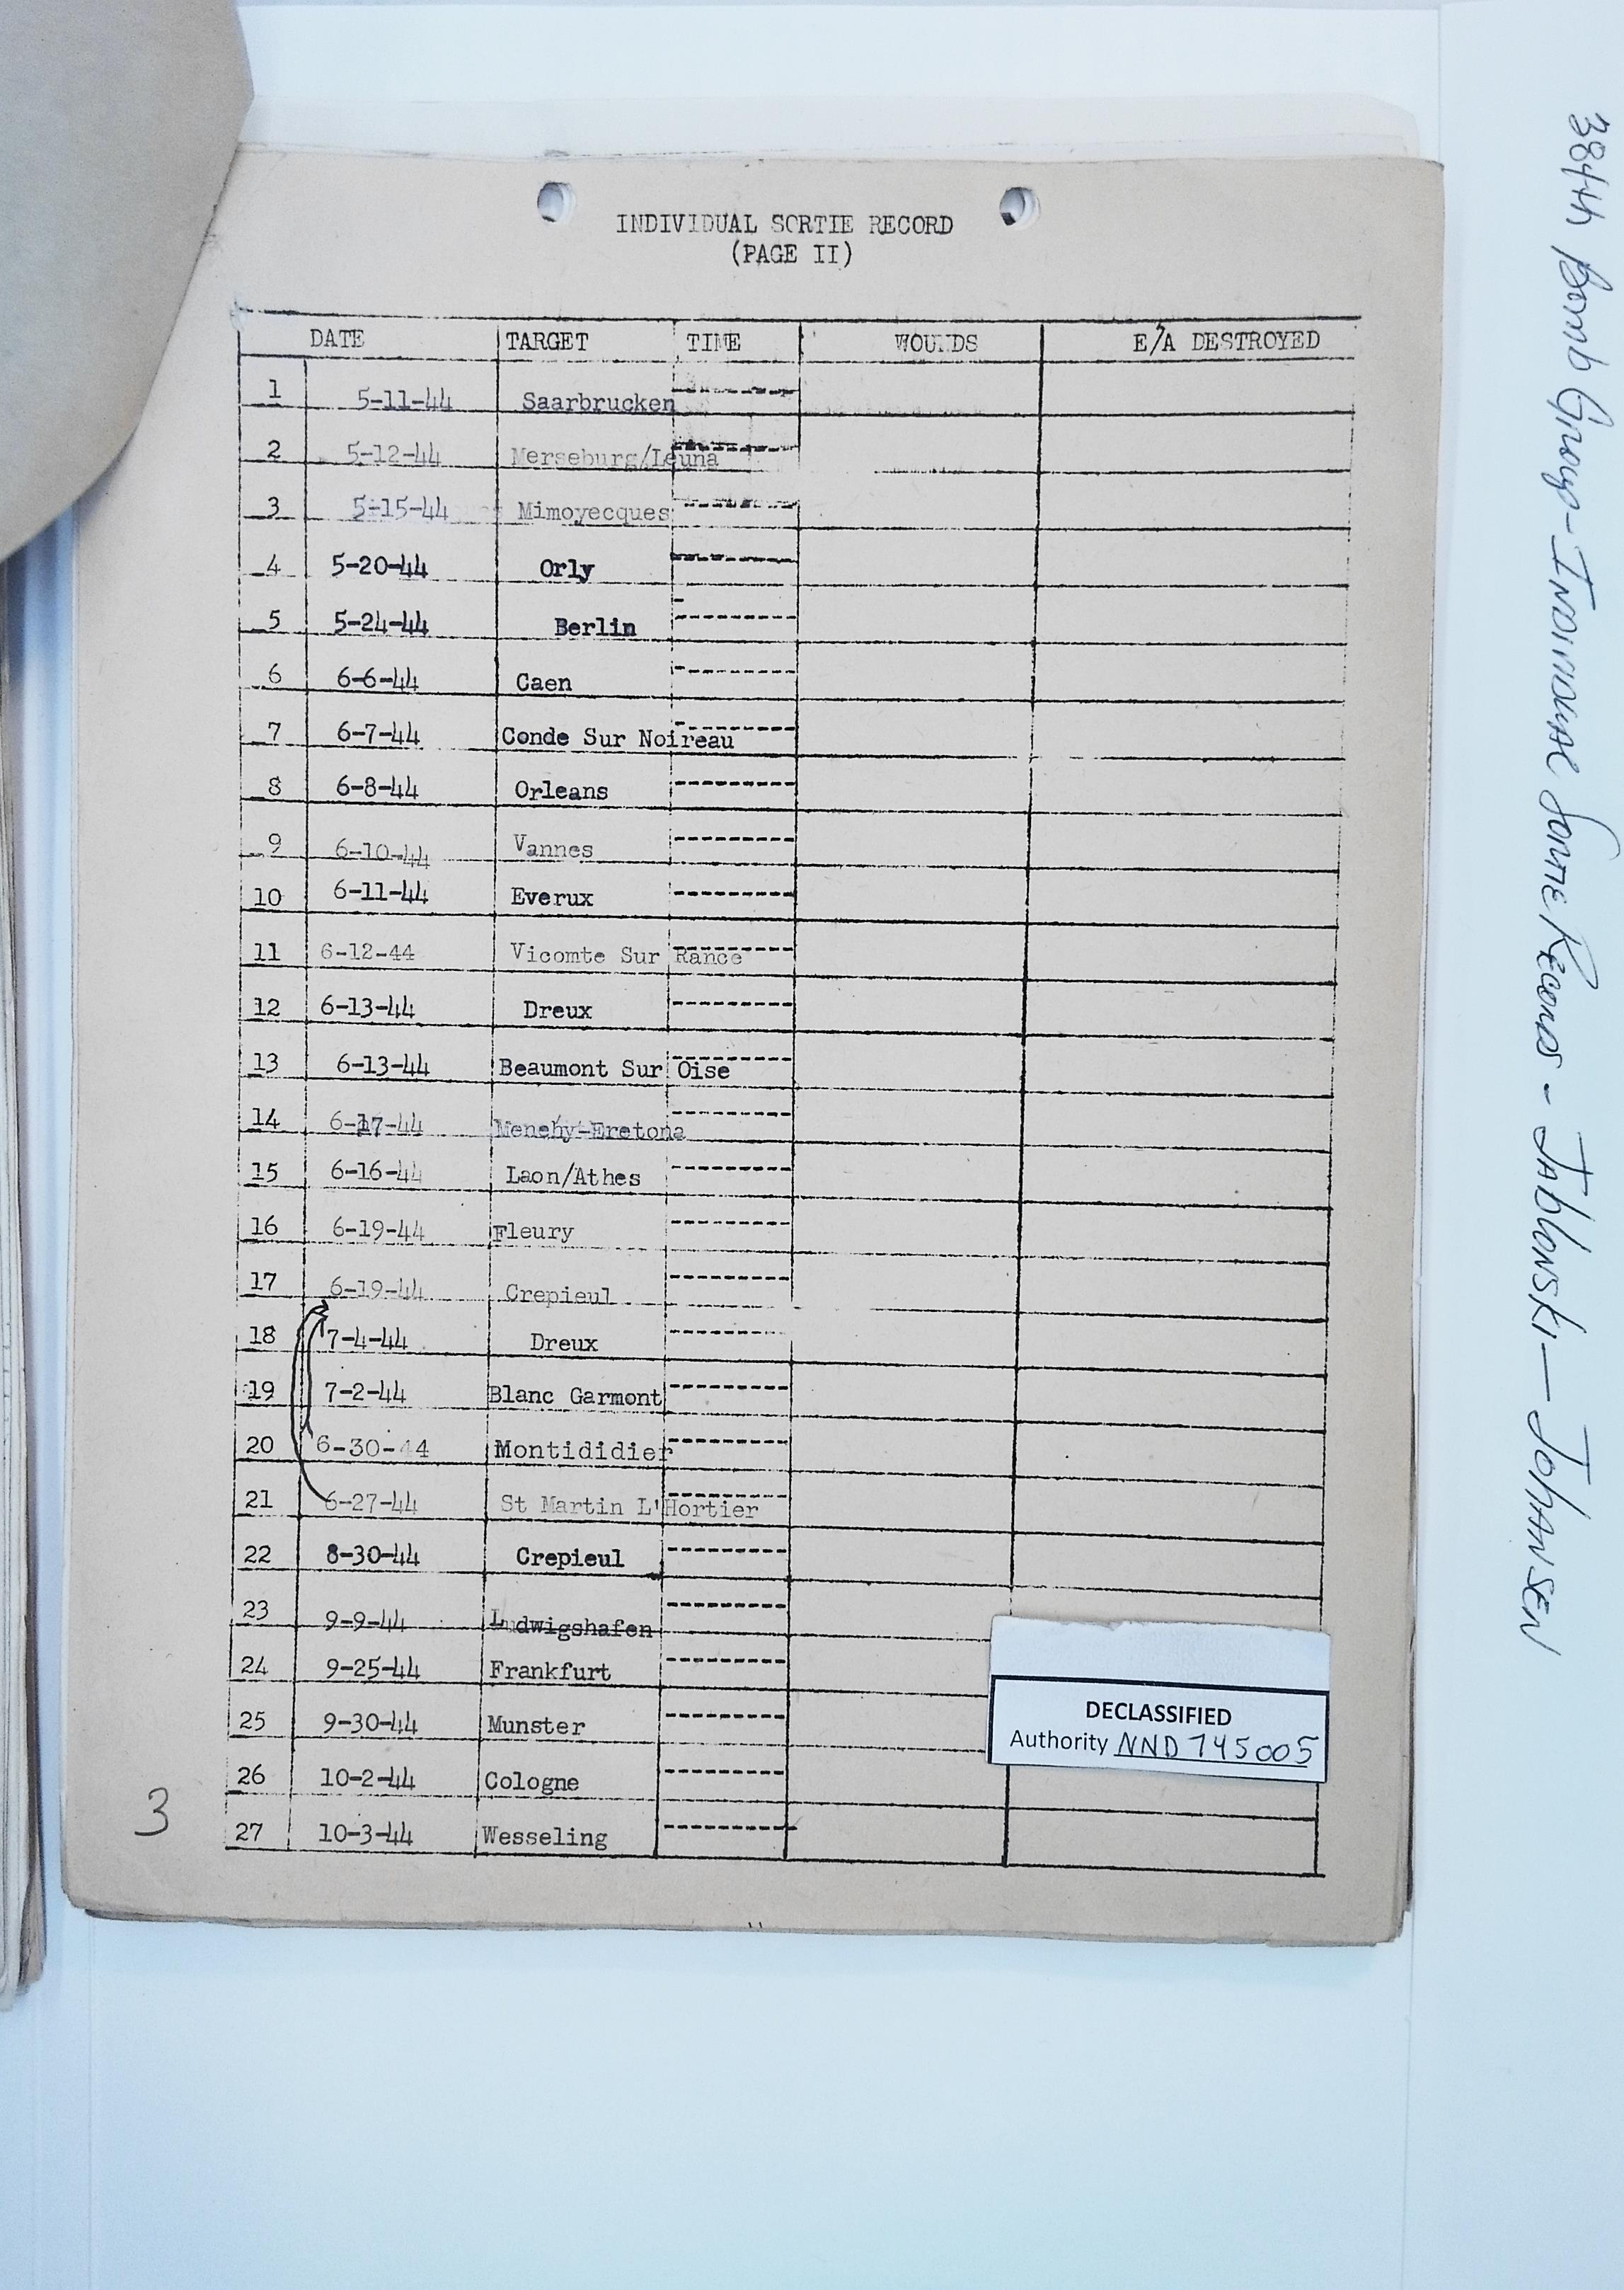 INDIVIDUAL SORTIE RECORD
(PAGE II)
DATE TARGET TIME WOUNDS E/A DESTROYED
1 5-11-44 Saarbrucken
2 5-12-44 Merseburg/Leuna
3 5-15-44 Mimoyecques
4 5-20-44 Orly
5 5-24-44 Berlin
6 6-6-44 Caen
7 6-7-44 Conde Sur Noireau
8 6-8-44 Orleans
9 6-10-44 Vannes
10 6-11-44 Everux
11 6-12-44 Vicomte Sur Rance
12 6-13-44 Dreux
13 6-13-44 Beaumont Sur Oise
14 6-17-44
15 6-16-44 Laon/Athes
16 6-19-44 Fleury
17 6-19-44 Crepieul
18 7-4-44 Dreux
19 7-2-44 Blanc Garmont
20 6-30-44 Montididier
21 6-27-44 St Martin L'Hortier
22 8-30-44 Crepieul
23 9-9-44 Ludwigshafen
24 9-25-44 Frankfurt
25 9-30-44 Munster
26 10-2-44 Cologne
27 10-3-44 Wesseling
DECLASSIFIED
Authority NND 745005
3
384th Bomb Group - Individual Sortie Records - Jablonski — Johansen